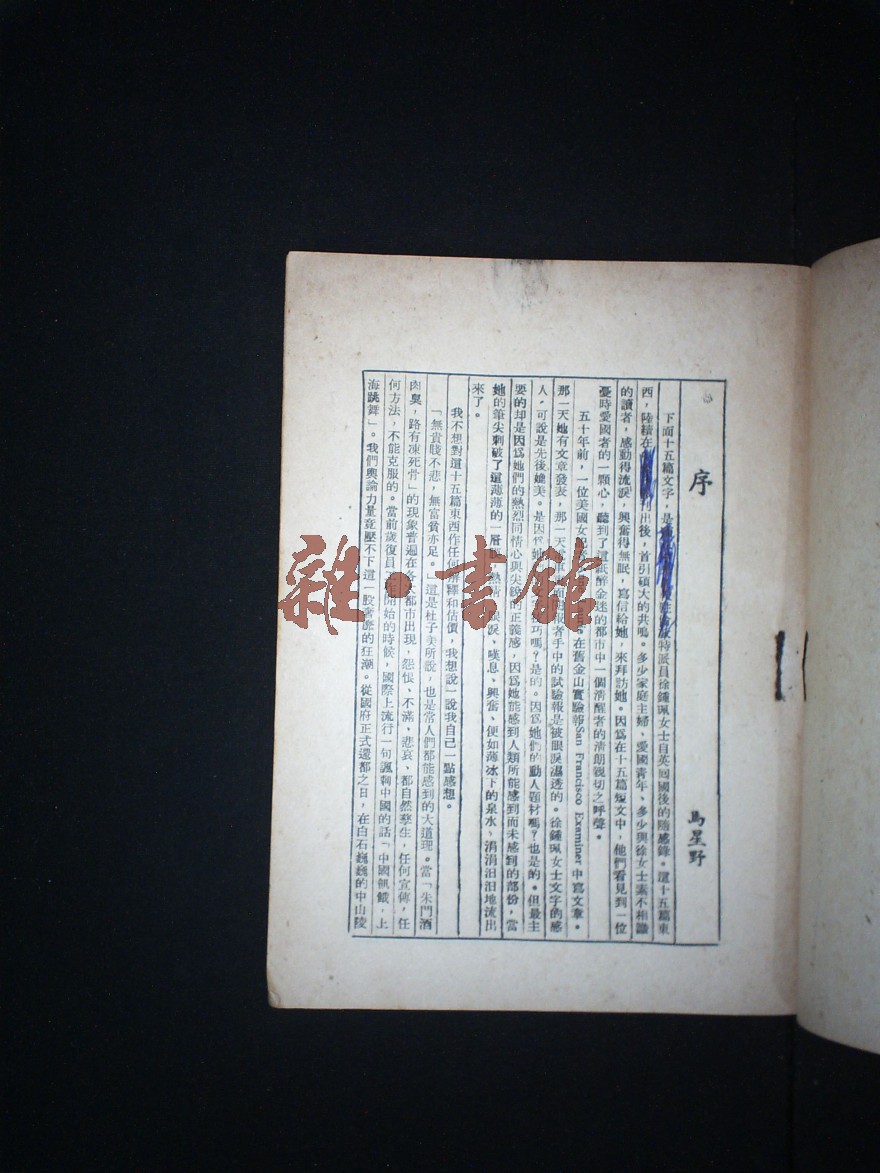 序
馬星野
下面十五篇文字，是特派員徐鍾珮女士自英回國後的隨感錄。這十五篇東
西，陸續在刊出後，首引碩大的共鳴。多少家庭主婦、愛國青年、多少與徐女士素不相識
的讀者，感動得流淚，興奮得無眠，寫信給她，來拜訪她。因爲在十五篇短文中，他們看見到一位
憂時愛國者的一顆心，聽到了這紙醉金迷的都市中一個清醒者的清朗親切之呼聲。
五十年前，一位美國女在舊金山實驗報San Francisco Examiner中寫文章。
那一天她有文章發表，那一天者手中的試驗報是被眼淚濕透的。徐鍾珮女士文字的感
人，可說是先後媲美。是因爲她巧嗎？是的。因爲她們的動人題材嗎？也是的。但最主
要的却是因爲她們的熱烈同情心與尖銳的正義感，因爲她能感到人類所能感到而未感到的部份，當
她的筆尖刺破了這薄薄的一層淚、嘆息、興奮、便如薄冰下的泉水、涓涓汩汩地流出
來了。
我不想對這十五篇東西作任何解釋和估價，我想說一說我自己一點感想。
「無貴賤不悲，無富貧亦足。」這是杜子美所說，也是常人們都能感到的大道理。當「朱門酒
肉臭，路有凍死骨」的現象普遍在各大都市出現，怨恨、不滿、悲哀、都自然孳生，任何宣傳，任
何方法，不能克服的。當前歲復員開始的時候，國際上流行一句諷刺中國的話「中國飢餓，上
海跳舞」。我們輿論力量竟壓不下這一股奢靡的狂潮。從國府正式還都之日，在白石巍巍的中山陵
雜·書館